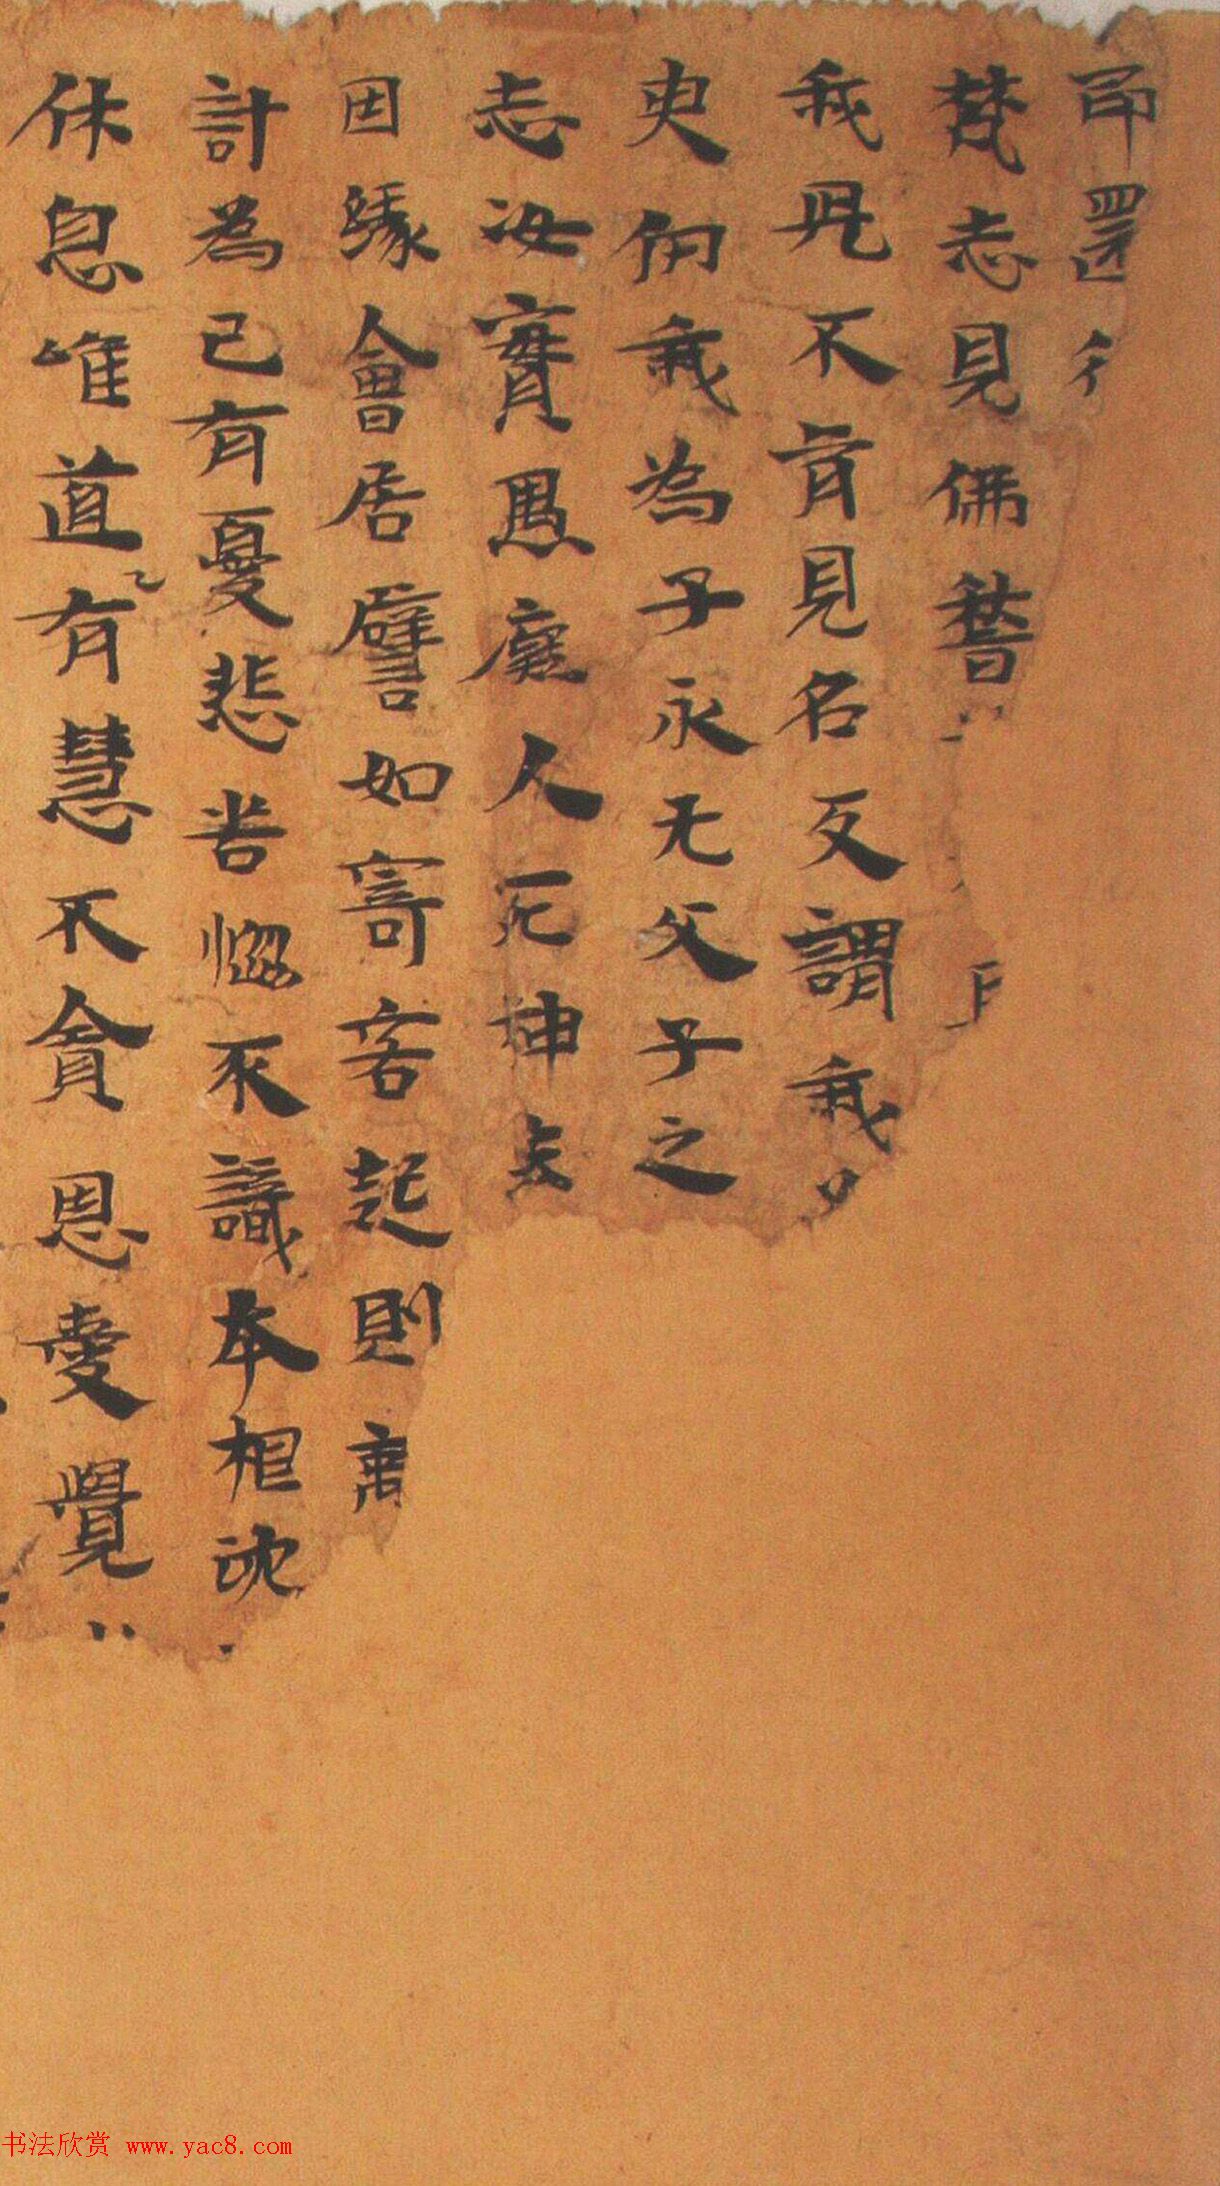 即還
梵志見佛稽
我兒不肯見名反謂我
臾仞我為子永无父子之
志汝實愚癡人死神去
因緣會居譬如寄客起則離
計為己有憂悲苦惱不識本相沈
休息唯道有慧不貪恩愛覺
书法欣赏 www.yac8.com